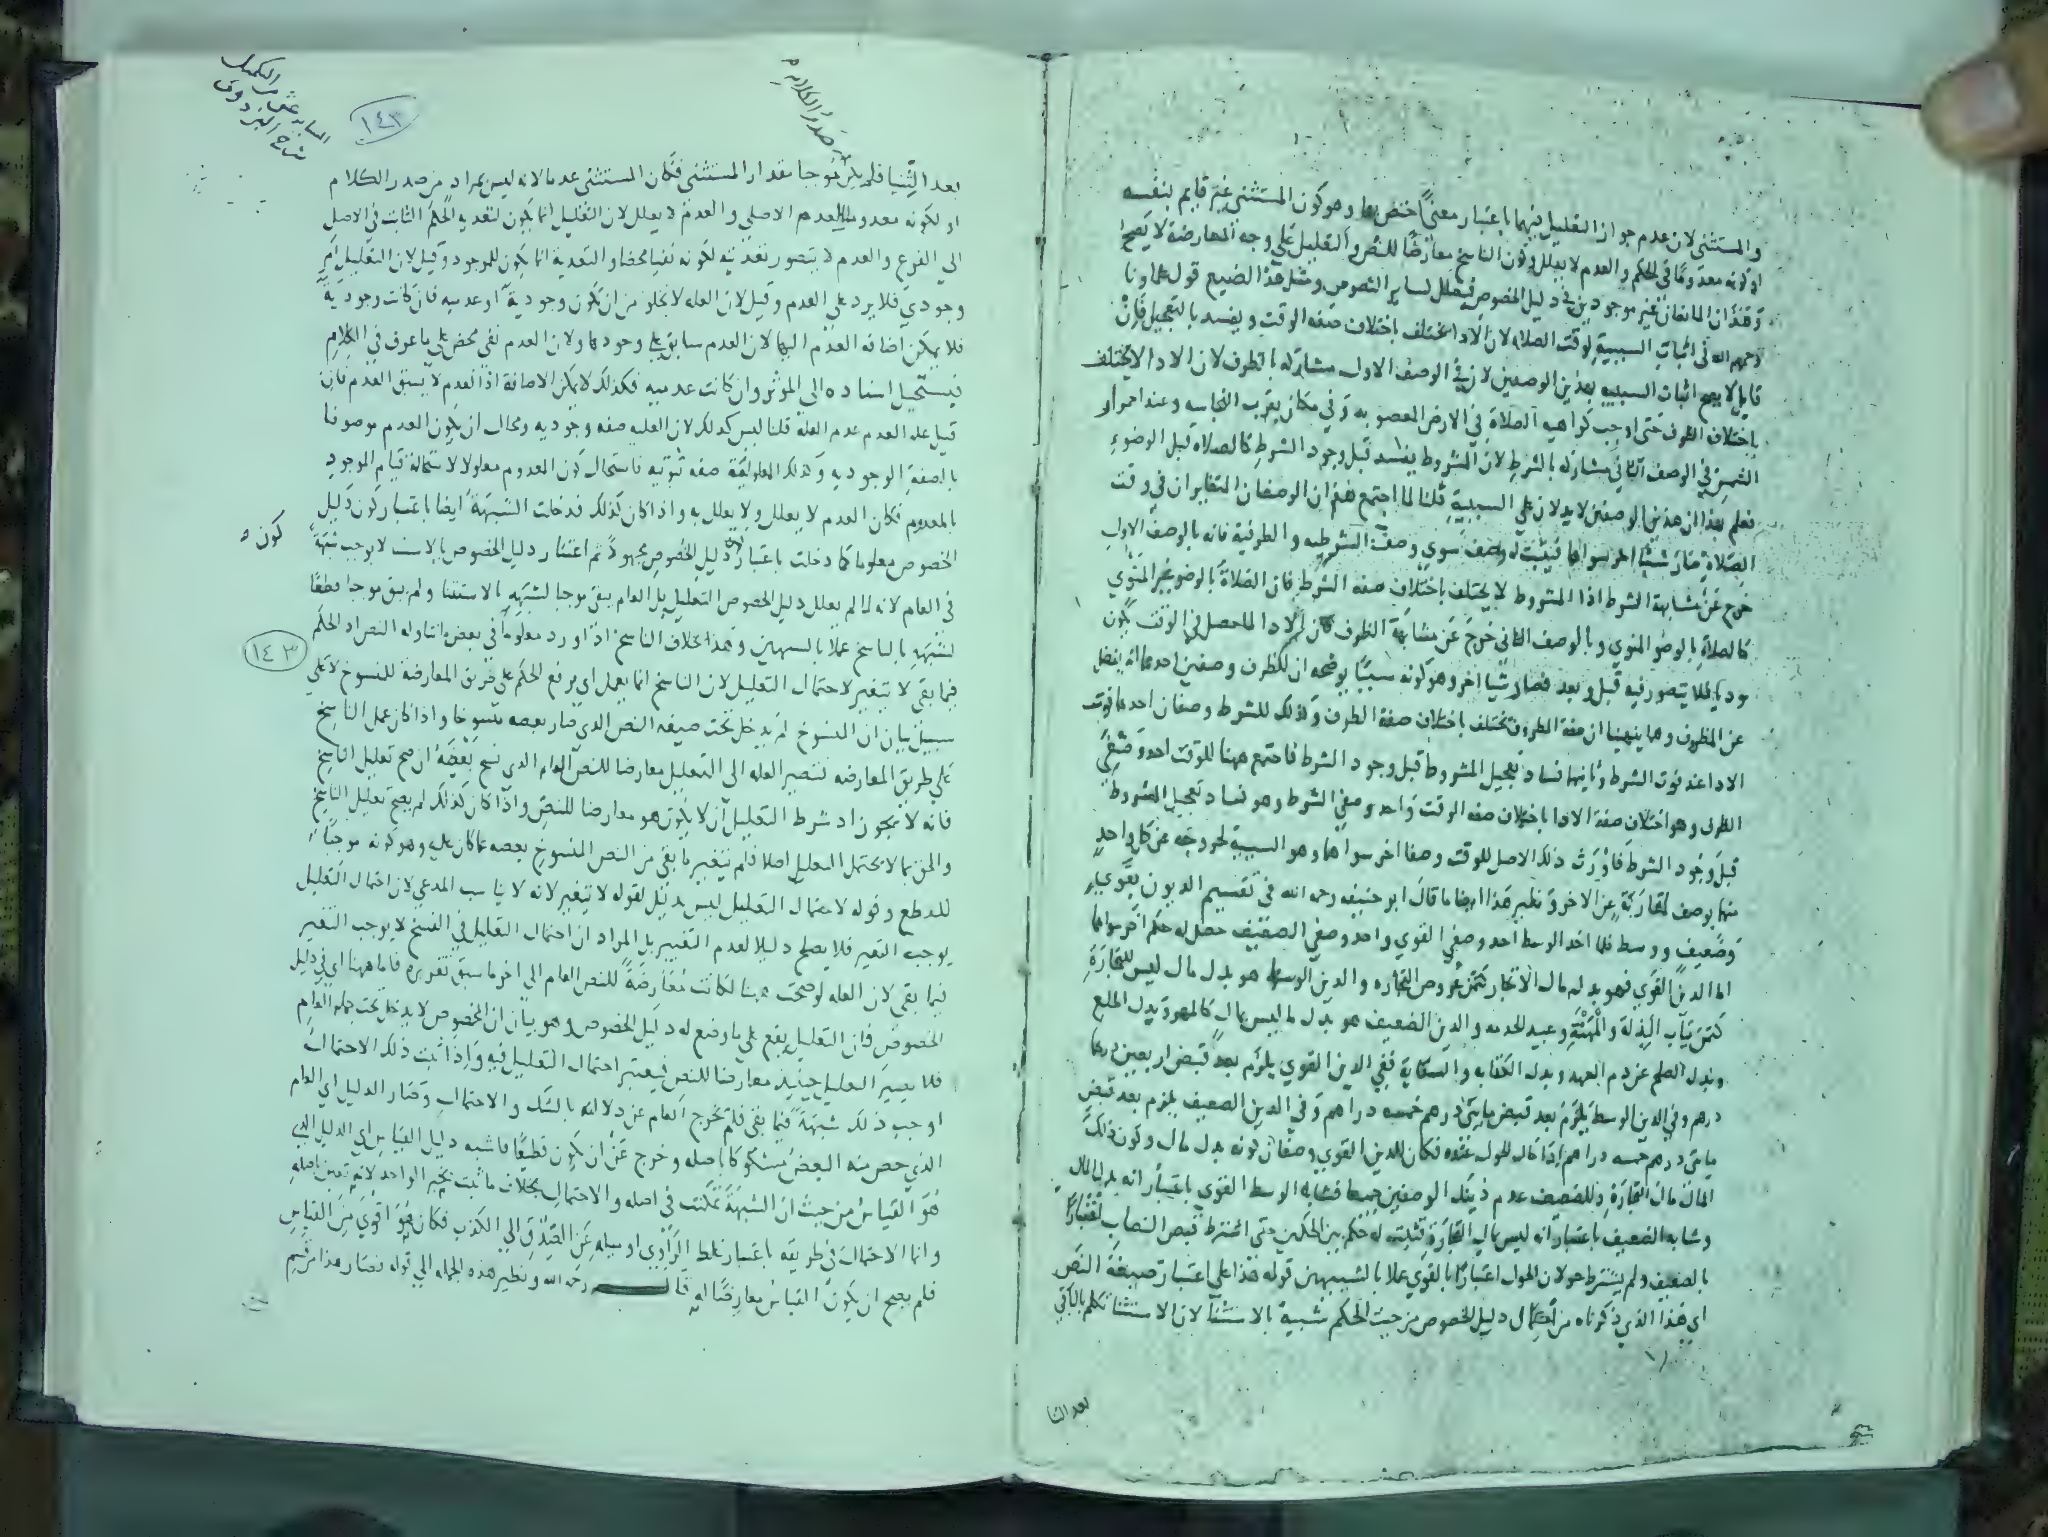 والمستثنى لان عدم جواز التعليل فيهما باعتبار معنى اختص بها وهو كون المستثنى غير قايم بنفسه
او كونه معدوما في الحكم والعدم لا يعلل وكون الناسخ معارضا للنص والتعليل على وجه المعارضة لا يصح
وهذان المانعان غير موجودين في دليل الخصوص فيعلل لساير النصوص ومثل هذا الصنيع قول علماونا
رحمهم الله في اثبات السببية لوقت الصلاة لان الادا مختلف باختلاف صفة الوقت ويفسد بالتعجيل فان
قايل لا يصح اثبات السببية بهذين الوصفين لان في الوصف الاول مشاركة بالظرف لان الادا لا يختلف
باختلاف الظرف حتى اوجب كراهية الصلاة في الارض المغصوبة وفي مكان يقرب النجاسة وعند احمرار
الشمس في الوصف الثاني مشاركة بالشرط لان المشروط يفسد قبل وجود الشرط كالصلاة قبل الوضوء
فعلم بهذا ان هذين الوصفين لا يدلان على السببية قلنا لما اجتمع هذان الوصفان المتغايران في وقت
الصلاة صار شيئا اخر سواهما فيثبت له وصف سوى وصف الشرطية والظرفية فانه بالوصف الاول
خرج عن مشابهة الشرط اذا المشروط لا يختلف باختلاف صفة الشرط فان الصلاة بالوضوء غير المنوي
كالصلاة بالوضو المنوي وبالوصف الثاني خرج عن مشابهة الظرف فان الادا الحاصل في الوقت يكون
يتصور فيه قبل وبعد فصار شيا اخر وهو كونه سببا يوضحه ان للظرف وصفين احدهما انه يفضل
عن المظروف وثانيهما ان صفة المظروف تختلف باختلاف صفة الظرف وكذلك للشرط وصفان احدهما فوت
الادا عند فوت الشرط وثانيهما فساد تعجيل المشروط قبل وجود الشرط فاجتمع ههنا للوقت احد وصفي
الظرف وهو اختلاف صفة الادا باختلاف صفة الوقت واحد وصفي الشرط وهو فساد تعجيل المشروط
قبل وجود الشرط فاورث ذلك الاصل للوقت وصفا اخر سواهما وهو السببية لخروجه عن كل واحد
منهما بوصف عن الاخر ونظير هذا ايضا ما قال ابو حنيفة رحمه الله في تقسيم الديون بقوي
وضعيف ووسط فلما اخذ الوسط احد وصفي القوي واحد وصفي الضعيف حصل له حكم اخر سواهما
اما الدين القوي فهو بدل مال الاتجار كثمن عروض التجارة والدين الوسط هو بدل مال ليس للتجارة
كثمن ثياب البذلة والمهنة وعبيد الخدمة والدين الضعيف هو بدل ما ليس بمال كالمهر وبدل الخلع
وبدل الصلح عن دم العمد وبدل الكتابة والسعاية ففي الدين القوي يلزم بعد قبض اربعين درهما
درهم وفي الدين الوسط يلزم بعد قبض مايتي درهم خمسة دراهم وفي الدين الضعيف يلزم بعد قبض
مايتي درهم خمسة دراهم اذا حال الحول عنده فكان للدين القوي وصفان كونه بدل مال وكون ذلك
المال مال التجارة وللضعيف عدم ذينك الوصفين جميعا فشابه الوسط القوي باعتبار انه بدل المال
وشابه الضعيف باعتبار انه ليس بمال التجارة فثبت له حكم بين الحكمين حتى اشترط قبض النصاب اعتبارا
بالضعيف ولم يشترط حولان الحول اعتبارا بالقوي عملا بالشبيهين قوله هذا على اعتبار صيغة النص
اي هذا الذي ذكرناه من دليل الخصوص من حيث الحكم شبيه بالاستثنا لان الاستثنا تكلم بالباقي
بعد الثنا
السابع عشر من التكميل
شرح البزدوي
١٤٣
من صدر الكلام
بعد الثنيا فلم يكن موجبا مقدار المستثنى فكان المستثنى عدما لانه ليس بمراد من صدر الكلام
او لكونه معدوما بالعدم الاصلي والعدم لا يعلل لان التعليل انما يكون لتعدية الحكم الثابت في الاصل
الى الفرع والعدم لا يتصور تعديته لكونه نفيا محضا والتعدية انما يكون للموجود وقيل لان التعليل امر
وجودي فلا يرد على العدم وقيل لان العلة لا تخلو من ان تكون وجودية او عدمية فان كانت وجودية
فلا يمكن اضافة العدم اليها لان العدم سابق على وجودها ولان العدم نفي محض على ما عرف في الكلام
فيستحيل اسناده الى الموثر وان كانت عدمية فكذلك لا يمكن الاضافة اذ العدم لا يسبق العدم فان
قيل علة العدم عدم العلة قلنا ليس كذلك لان العلية صفة وجودية ومحال ان يكون العدم موصوفا
بالصفة الوجودية وكذلك المعلولية صفة ثبوتية فاستحال كون المعدوم معلولا لاستحالة قيام الموجود
بالمعدوم فكان العدم لا يعلل ولا يعلل به واذا كان كذلك فدخلت الشبهة ايضا باعتبار كون دليل
الخصوص معلوما كما دخلت باعتبار دليل الخصوص مجهولا ثم اعتبار دليل الخصوص بالاستثنا لا يوجب شبهة
كون
في العام لانه لما لم يعلل دليل الخصوص التعليل بل العام يبقى موجبا لشبهه بالاستثنا ولم يبق موجبا قطعا
لشبهه بالناسخ عملا بالشبهين وهذا بخلاف الناسخ اذا ورد معلوما في بعض ما تناوله النص اذ الحكم
١٤٣
فيما بقي لا يتغير لاحتمال التعليل لان الناسخ انما يعمل اي يرفع الحكم على طريق المعارضة للمنسوخ لا على
سبيل بيان ان المنسوخ لم يدخل تحت صيغة النص الذي صار بعضه منسوخا واذا كان عمل الناسخ
على طريق المعارضة فتصير العلة الى التعليل معارضا للنص العام الذي نسخ بعضه ان صح تعليل الناسخ
فانه لا يجوز اذ شرط التعليل ان لا يكون هو معارضا للنص واذا كان كذلك لم يصح تعليل الناسخ
والحق بما لا يحتمل التعليل اصلا فلم يتغير ما بقي من النص المنسوخ بعضه عما كان عليه وهو كونه موجبا
للقطع وقوله لاحتمال التعليل ليس بدليل لقوله لا يتغير لانه لا يناسب المدعي لان احتمال التعليل
يوجب التغير فلا يصلح دليلا لعدم التغيير بل المراد ان احتمال التعليل في النسخ لا يوجب التغير
فيما بقي لان العلة لو صحت ههنا لكانت معارضة للنص العام الى اخر ما سبق تقريره فاما ههنا اي في دليل
الخصوص فان التعليل يقع على ما وضع له دليل الخصوص وهو بيان ان المخصوص لا يدخل تحت جملة العام
فلا يصير التعليل حينيذ معارضا للنص فيعتبر احتمال التعليل فيه واذا ثبت ذلك الاحتمال
اوجب ذلك شبهة فيما بقي فلم تخرج العام عن دلالته بالشك والاحتمال وصار الدليل اي العام
الذي خص منه البعض مشكوكا باصله وخرج عن ان يكون قطعيا فاشبه دليل القياس اي الدليل الذي
هو القياس من حيث ان الشبهة تمكنت في اصله والاحتمال بخلاف ما ثبت بخبر الواحد لانه يقين باصله
وانما الاحتمال في طريقه باعتبار غلط الراوي او ميله عن الصدق الى الكذب فكان هو اقوى من القياس
فلم يصح ان يكون القياس معارضا له قال رحمه الله ونظير هذه الجملة الى قوله فصار هذا من قسم